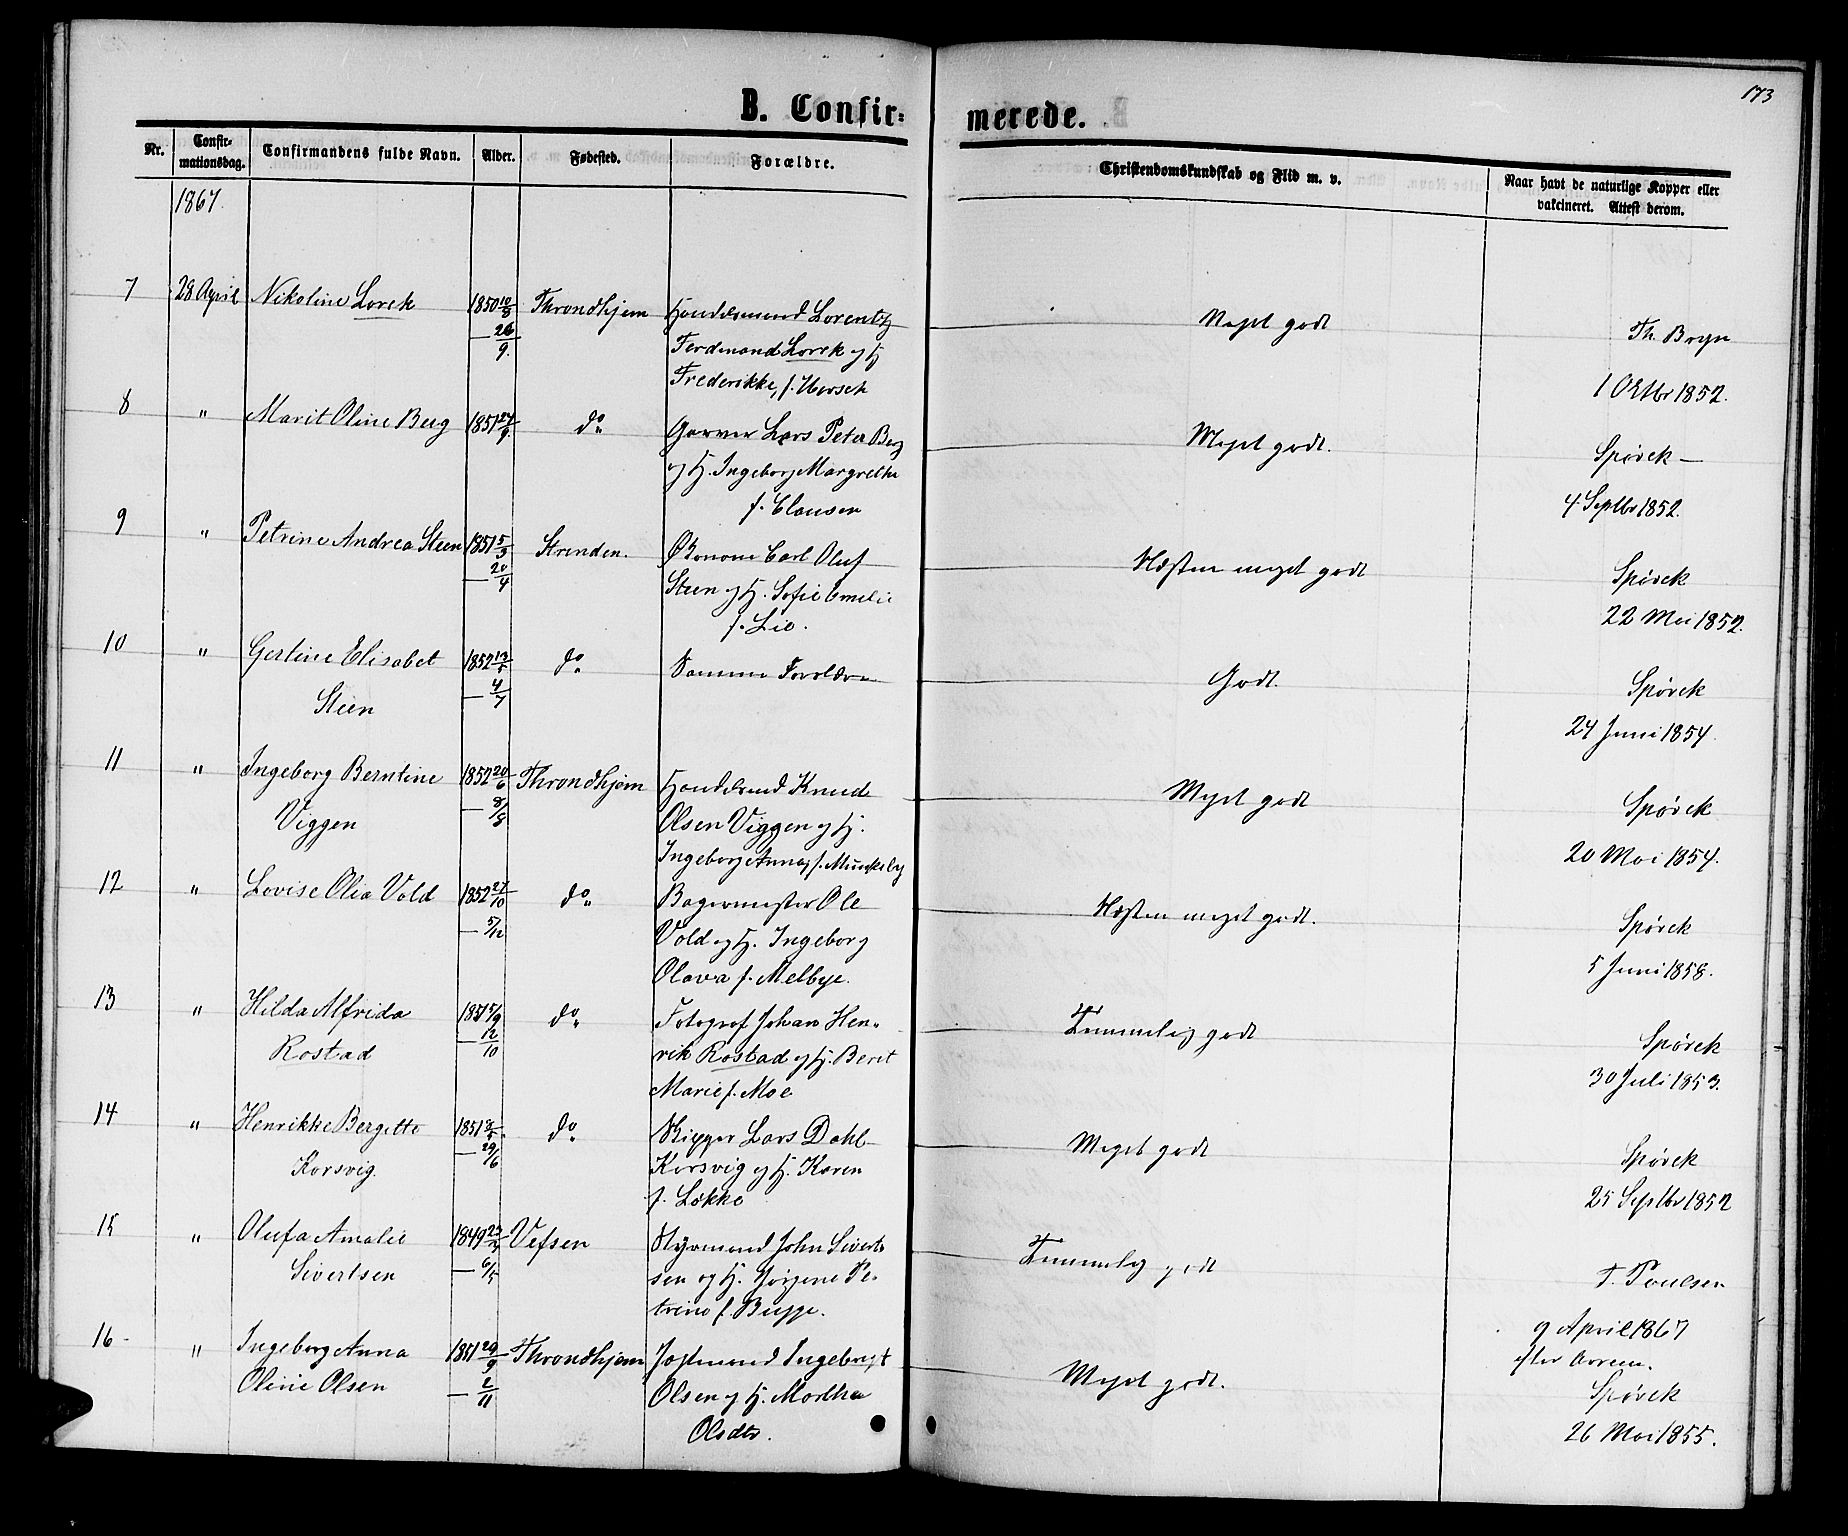 173
B. Confirmerede.
Nr. Confirmationsdag. Confirmandens fulde Navn. Alder. Fødested. Forældre. Christendomskundskab og Flid m. v. Naar havt de naturlige Kopper eller vakcineret. Attest derom.
1867.
7 28 April Nikoline Lorck 1850 10/8 Throndhjem Handelsmand Lorentz Meget godt Th. Bryn
26/9. Ferdinand Lorck og H.
Frederikke, f. Hersch 1 Oktbr 1852.
8 " Marit Oline Berg 1851 27/9. do Garver Lars Peter Berg Meget godt. Spørck —
og H. Ingeborg Margrethe
f. Clausen 4 Septbr 1852.
9 " Petrine Andrea Steen 1851 5/3 Strinden. Økonom Carl Oluf Næsten meget godt Spørck
— 20/4 Steen og H. Sofie Emelie 22 Mai 1852.
f. Lie.
10 " Gertine Elisabet 1852 13/5 do Samme Forældre Godt. Spørck
Steen — 4/7 24 Juni 1854.
11 " Ingeborg Berntine 1852 20/6 Throndhjem Handelsmd Knud Meget godt Spørck
Viggen — 8/8 Olsen Viggen og H.
Ingeborg Anna, f. Munkeby 20 Mai 1854.
12 " Lovise Olia Vold 1852 27/10 do Bagermester Ole Næsten meget godt. Spørck
— 5/12 Vold og H. Ingeborg
Olava f. Melbye. 5 Juni 1858.
13 " Hilda Alfrida 1851 5/9 do Fotograf Johan Hen- Temmelig godt Spørck
Rostad — 12/10 rik Rostad og H. Beret 30 Juli 1853.
Marie f. Moe
14 " Henrikke Bergitte 1851 do Skipper Lars Dahl Meget godt Spørck
Korsvig. — 29/6 Korsvig og H. Karen
f. Løkke 25 Septbr 1852
15 " Olufa Amalie 1849 Vefsen Styrmand John Sivert- Temmelig godt T. Poulsen
Sivertsen — 6/5 sen og H. Jørgine Pe-
trine f. Bugge. 9 April 1867
efter
16 - " Ingeborg Anna 1851 29/9 Throndhjem Ingebrigt Meget godt. Spørck
Oline Olsen — 2/11 Olsen og H. Martha
Olsdtr. 26 Mai 1855.